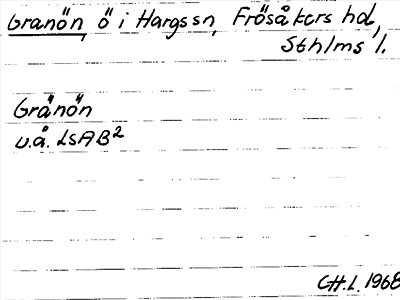 Granön, ö i Hargssn, Frösåkers hd,
Sthlms l.
Grånön
u.å. LsAB²
CH.L. 1968